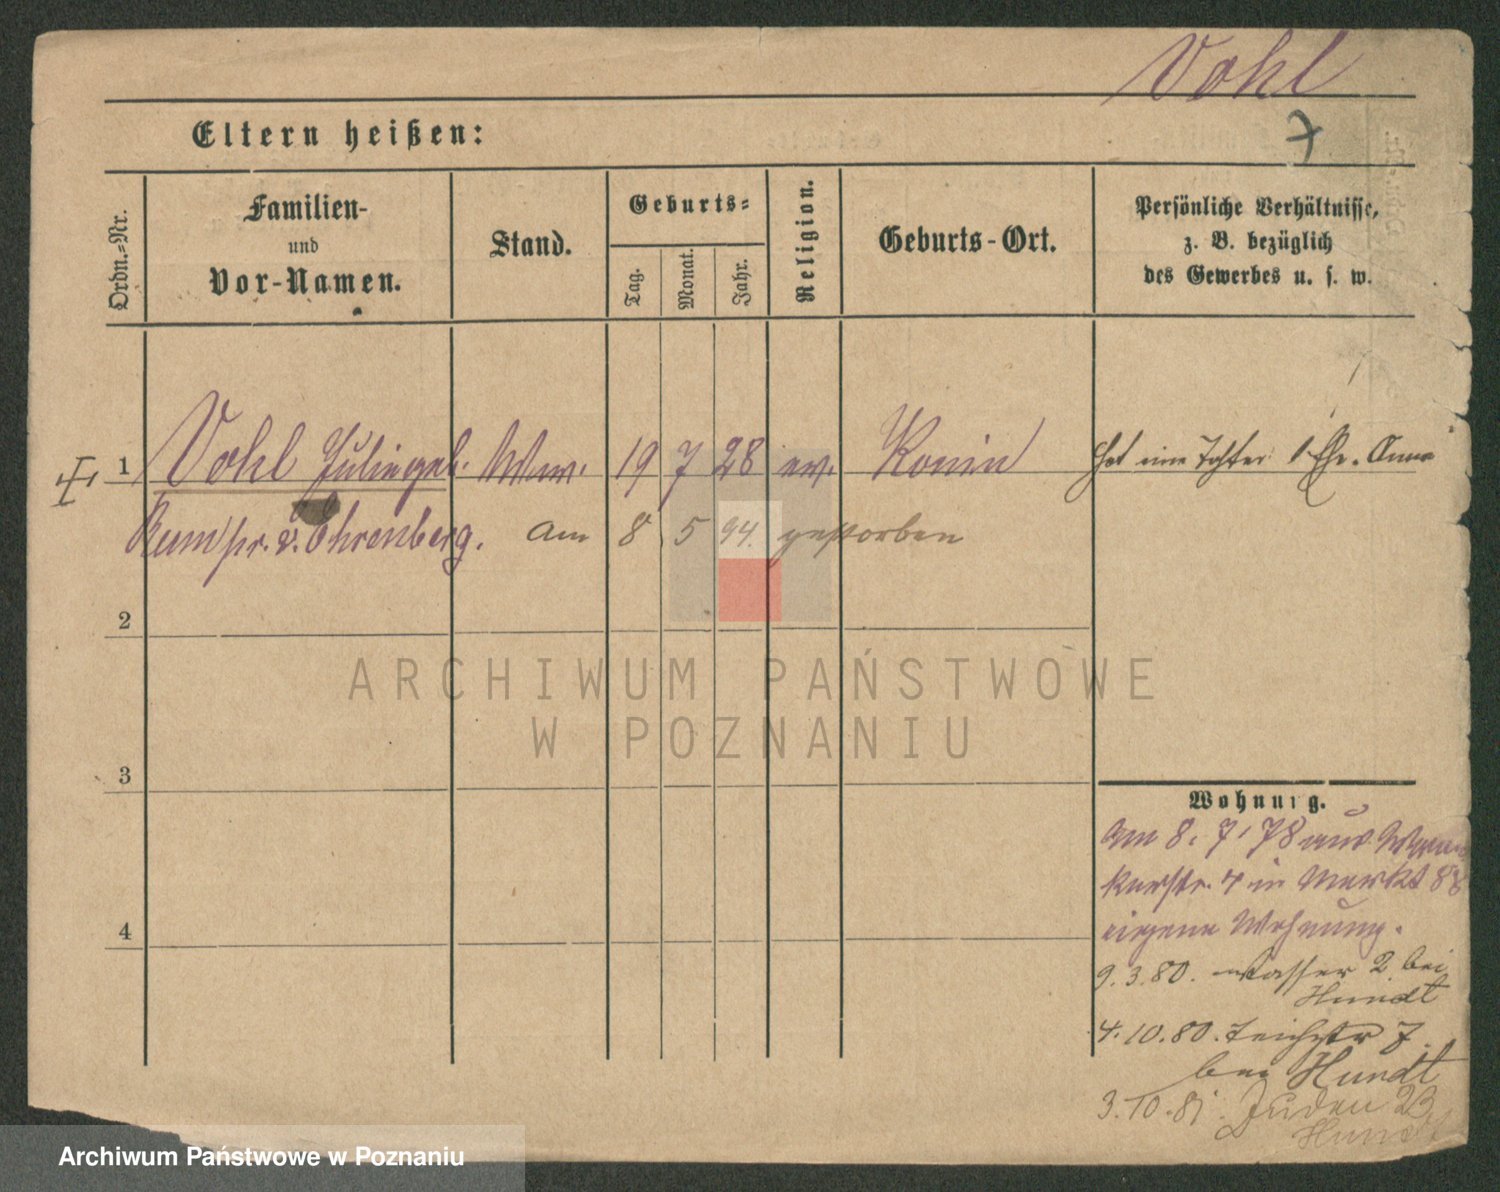 Vohl
7
Eltern heißen:
Ordn.-Nr.
Familien-
und
Vor-Namen.
Stand.
Geburts-
Tag.
Monat.
Jahr.
Religion.
Geburts-Ort.
Persönliche Verhältnisse,
z. B. bezüglich
des Gewerbes u. s. w.
1 Vohl 19 7 28 ev. Konin hat eine Tochter Anna
v. Ehrenberg. am 8 5 94. gestorben
2
ARCHIWUM PAŃSTWOWE
W POZNANIU
3
Wohnung.
Am 8. 7. 78 aus
4 in Markt 88
eigene Wohnung.
4
9.3.80. Wasser 2 bei
Hundt
4.10.80. Teichstr 7.
bei Hundt
3.10.81. Juden 23
Hundt
Archiwum Państwowe w Poznaniu